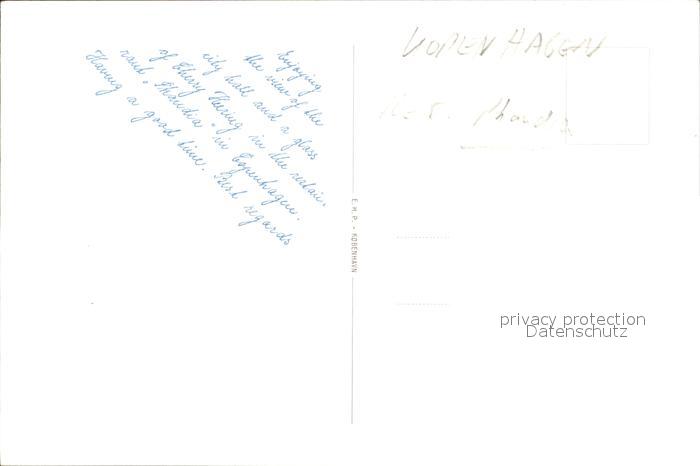 Enjoying
the view of the
city hall and a glass
of Cherry Heering in the restau-
rant "Skandia" in Copenhagen.
Having a good time. Best regards
E.H.P. - KØBENHAVN
KOPENHAGEN
privacy protection
Datenschutz